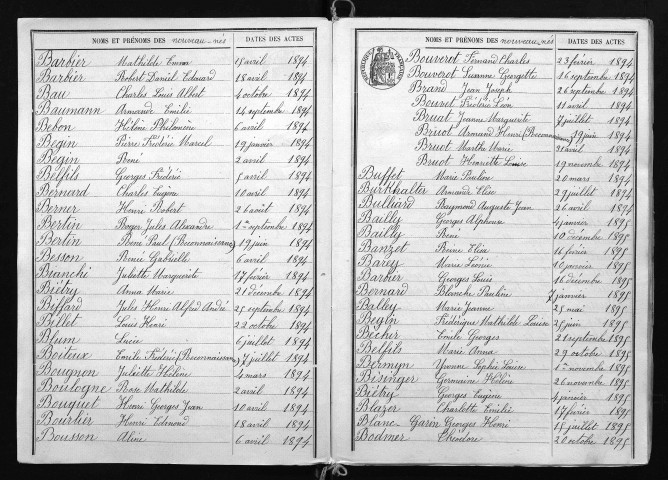 NOMS ET PRÉNOMS DES nouveau-nés DATES DES ACTES
Barbier Mathilde Emma 15 avril 1894
Barbier Robert Daniel Edouard 18 avril 1894
Bau Charles Louis Albert 4 octobre 1894
Baumann Armande Emilie 14 septembre 1894
Bebon Hélène Philomène 6 avril 1894
Begin Pierre Frédéric Marcel 19 janvier 1894
Begin René 2 avril 1894
Belfils Georges Frédéric 5 avril 1894
Bernard Charles Eugène 10 avril 1894
Berner Henri Robert 26 août 1894
Bertin Roger Jules Alexandre 1er septembre 1894
Bertin René Paul (Reconnaissance) 19 juin 1894
Besson Renée Gabrielle 6 avril 1894
Bianchi Juliette Marguerite 17 février 1894
Biétry Anna Marie 21 décembre 1894
Biffard Jules Henri Alfred André 25 septembre 1894
Billet Louis Henri 22 octobre 1894
Blum Lucie 6 juillet 1894
Boiteux Emile Frédéric (Reconnaissance) 7 juillet 1894
Bougnon Juliette Hélène 4 mars 1894
Boulogne Rose Mathilde 2 avril 1894
Bouquet Henri Georges Jean 10 avril 1894
Bourlier Henri Edmond 18 avril 1894
Bousson Aline 6 avril 1894
NOMS ET PRÉNOMS DES nouveau-nés DATES DES ACTES
Bouverot Fernand Charles 23 février 1894
Bouverot Suzanne Georgette 16 septembre 1894
Brand Jean Joseph 26 septembre 1894
Bouvet Frédéric Léon 11 avril 1894
Bruat Jeanne Marguerite 7 juillet 1894
Bruot Armand Henri (Reconnaissance) 19 juin 1894
Bruot Marthe Marie 30 avril 1894
Bruot Henriette Louise 19 novembre 1894
Buffet Marie Pauline 20 mars 1894
Burkhalter Armande Elise 29 juillet 1894
Bulliard Raymond Auguste Jean 26 avril 1894
Bailly Georges Alphonse 4 janvier 1895
Bailly René 10 décembre 1895
Banzet Reine Elisa 16 février 1895
Barey Marie Léonie 10 janvier 1895
Barbier Georges Louis 16 décembre 1895
Bernard Blanche Pauline 7 janvier 1895
Balley Marie Jeanne 25 mai 1895
Begin Frédérique Mathilde Louise 25 juin 1895
Bècher Emile Georges 21 septembre 1895
Belfils Marie Anna 29 octobre 1895
Bermyn Yvonne Sophie Louise 1er novembre 1895
Bisinger Germaine Hélène 26 novembre 1895
Biétry Georges Eugène 4 janvier 1895
Blazer Charlotte Emilie 17 février 1895
Blanc Garin Georges Henri 15 juillet 1895
Bodmer Théodore 20 octobre 1895